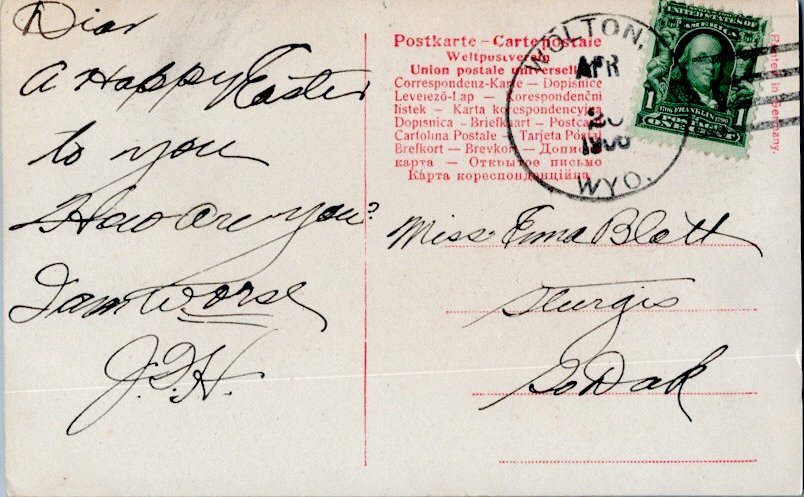 Dear
A Happy Easter
to you
How are you?
I am worse
J.F.H.
Postkarte – Carte postale
Weltpostverein
Union postale universelle
Correspondenz-Karte — Dopisnice
Levelező-Lap — Korespondenční
lístek — Karta korespondencyjna
Dopisnica — Briefkaart — Postcard
Cartolina Postale — Tarjeta Postal
Brefkort — Brevkort — Дописна
карта — Открытое письмо
Карта кореспонденційна
WOLTON,
APR
WYO.
UNITED STATES OF
AMERICA
1 FRANKLIN 1
POSTAGE
ONE CENT
Printed in Germany.
Miss Emma Blatt
Sturgis
So Dak